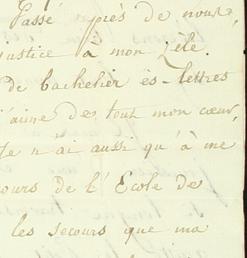 Passé près de nous,
justice à mon zele.
de bachelier ès-lettres
j'aime de tout mon cœur,
Je n'ai aussi qu'à me
cours de l'École de
les secours que ma